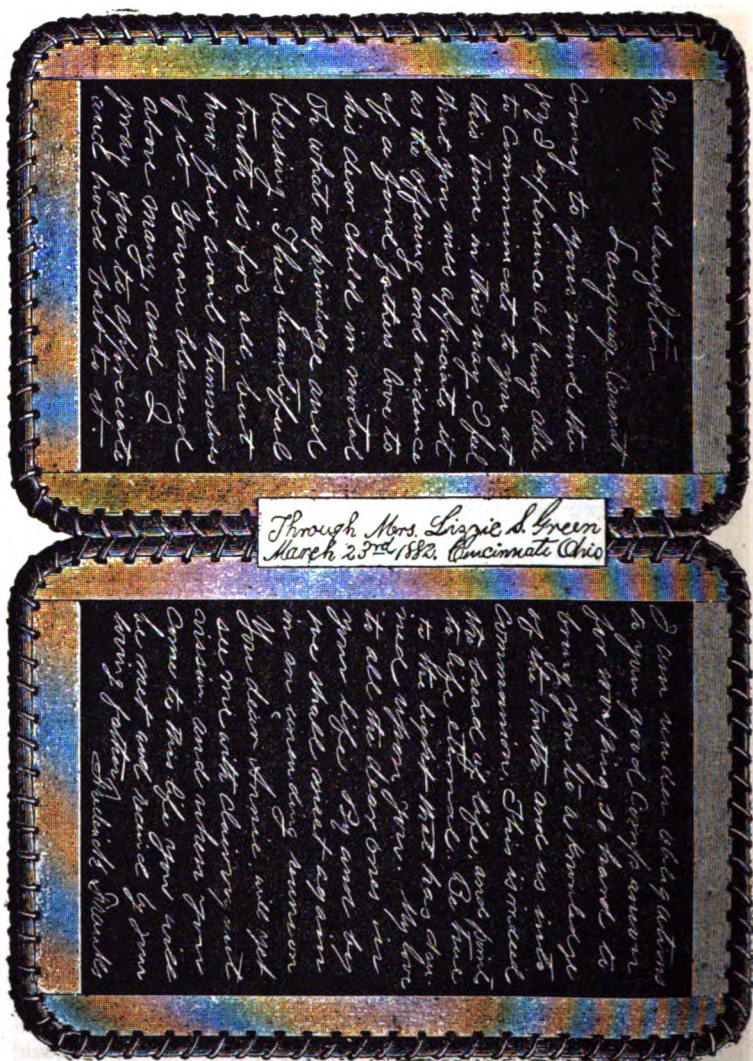 My dear daughter—
Language cannot
convey to your mind the
joy I experience at being able
to communicate to you at
this time in this way. I feel
that you will appreciate it
as the offering and evidence
of a fond fathers love to
his dear child in mortal
Oh what a priviledge and
blessing. This beautiful
truth is for all but
how few avail themselves
of it. You are blessed
above many, and I
pray you to appreciate
and hold fast to it.
Through Mrs. Lizzie S. Green
March 23rd 1882. Cincinnati Ohio
I am under obligations
to your good Companion
for working so hard to
bring you to a knowledge
of the truth and us into
Communion. This is indeed
the bread of life, and points
to life eternal. Be true
to the light that has dawned
upon you. My love
to all the dear ones in
your life. By and by
we shall meet again
in an unending reunion
You dear will yet
see me with clearing out
and when you
come to this life you will
be met and by your
loving father